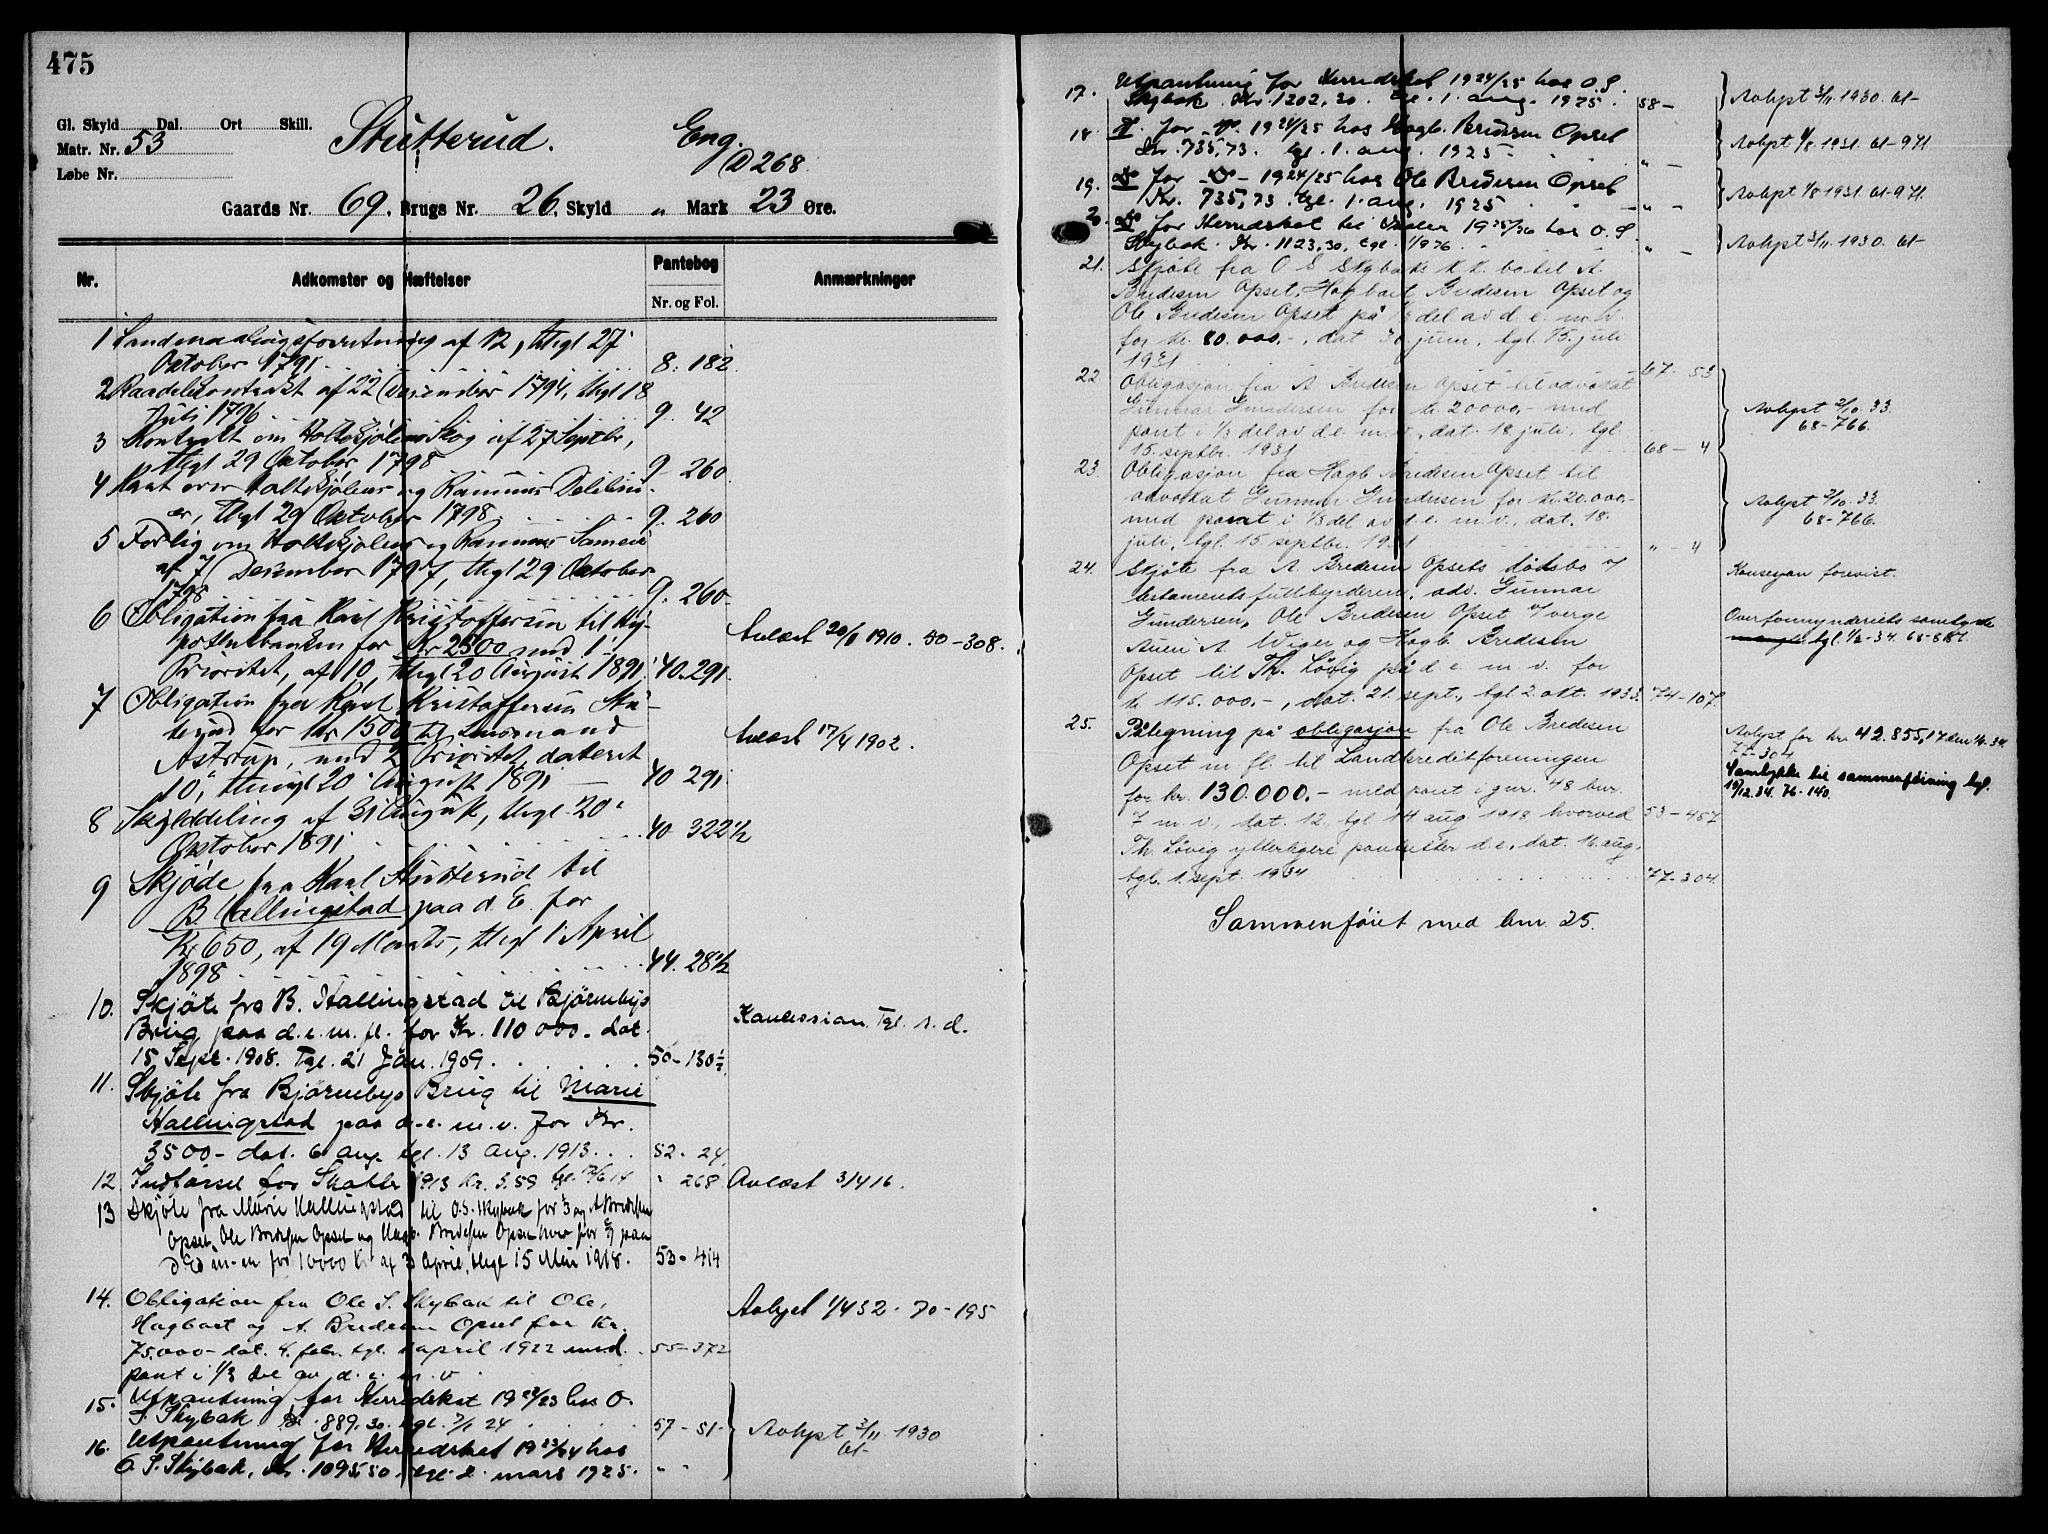 475
Gl. Skyld Dal. Ort Skill.
Matr. Nr. 53
Løbe Nr.
Stutterud. Eng.
@ 268.
Gaards Nr. 69. Brugs Nr. 26. Skyld " Mark 23 Øre.
Nr. Adkomster og Hæftelser Pantebog Anmærkninger
Nr. og Fol.
1 Landmaalingsforretning af 12, thgl 27
Oktober 1791 8. 182
2 Raadelskontrakt af 22 December 1794, thgl 18
Juli 1796 9. 42
3 Kontrakt om Holtskjølens Skog af 27 Septbr,
thgl 29 Oktober 1798 9. 260
4 over Holtskjølens og Rammus
thgl 29 Oktober 1798 9. 260
5 Forlig om Holtskjølens og Rammus
af 7 December 1797, thgl 29 Oktober
1798 9. 260
6 Obligation fra Karl Kristoffersen til Hy-
pothekbanken for Kr 2500 med 1
Prioritet, af 10, thgl 20 August 1891. 40. 291.
Avlæst 20/8 1910. 50-308.
7 Obligation fra Karl Kristoffersen Stu-
terud for Kr 1500 til Lensmand
Astrup, med 2 Prioritet, dateret
10, thingl 20 August 1891 40 291
Avlæst 17/4 1902.
8 Skylddeling af 31 August, thgl. 20
Oktober 1891 40 322 1/2
9 Skjøde fra Karl Stutterud til
B. Hallingstad paa d. E. for
Kr 650, af 19 Marts, thgl 1 April
1898 44. 28 1/2
10. Skjøte fra B. Hallingstad til Bjørnebys
Brug paa d. e. m. fl. for Kr. 110 000. dat.
15 Sept. 1908. Tgl. 21 Jan. 1909. 50-130 1/2
Koncession Tgl. s. d.
11. Skjøte fra Bjørnebys Brug til Marie
Hallingstad paa d. e. m. v. for Kr.
3500- dat. 6 aug. tgl. 13 aug. 1913. 52. 24
12 Indførsel for Skatter 1913 Kr. 5.59 tgl. 14 " 268 Avlæst 3/4 16.
13 Skjøte fra Marie Hallingstad til O. S. Skybak for 1/3 og A Bredesen
Opset, Ole Bredesen Opset og Hagb. Bredesen Opset hver for 2/9 paa
d E m. m for 10000 Kr af 3 April, thgl 15 Mai 1918. 53-414
14. Obligation fra Ole S. Skybak til Ole,
Hagbart og A. Bredesen Opset for Kr.
75.000- dat. 4. febr. tgl. 1 april 1922 med 55-372
pant i 1/3 del av d. e. m. v.
Avlyst 1/4 32. 70-195
15. Utpantning for Herredskat 1922/23 hos O.
S. Skybak Kr. 889,30. tgl. 7/1 24 57-51-
16. Utpantning for Herredskat 1923/24 hos
O. S. Skybak, Kr. 1095,50, tgl. 2. mars 1925. " "
Avlyst 3/11 1930
61-
17. Utpantning for Herredskat 1924/25 hos O. S.
Skybak Kr. 1202,30. tgl. 1. aug. 1925. 58-
Avlyst 3/11 1930. 61-
18. D. for do. 1924/25 hos Hagb. Bredesen Opset
Kr. 735,73. tgl. 1. aug. 1925. " -
Avlyst 1/8 1931. 61-971
19. do for do - 1924/25 hos Ole Bredesen Opset
Kr. 735,73. tgl. 1. aug. 1925 " -
Avlyst 1/8 1931. 61-971.
20. do for Herredskat til Våler 1925/26 hos O. S
Skybak. Kr. 1123,30, tgl. 1/9 26 " -
Avlyst 3/11 1930. 61-
21. Skjøte fra O S Skybaks k.k. bo til A.
Bredesen Opset, Hagbart Bredesen Opset og
Ole Bredesen Opset på 1/3 del av d. e. m. v.
for kr. 80.000.-, dat 30 juni, tgl. 15. juli
1931 67-53
22 Obligasjon fra A Bredesen Opset til advokat
Gunnar Gundersen for kr. 20000,- med
pant i 1/3 del av d.e. m. v., dat. 18 juli, tgl.
15. septbr. 1931 68-4
Avlyst 2/10. 33.
68-766.
23. Obligasjon fra Hagb Bredesen Opset til
advokat Gunnar Gundersen for kr. 20.000.-
med pant i 1/3 del av d. e. m. v., dat. 18.
juli, tgl. 15. septbr. 1931 " - 4
Avlyst 2/10. 33.
68-766.
24. Skjøte fra A Bredesen Opsets dødsbo v/
testamentsfullbyrderen, adv. Gunnar
Gundersen, Ole Bredesen Opset v/verge
A Wiger og Hagb. Bredesen
Opset til Th. Løvig på d. e. m. v. for
kr 115.000.-, dat. 21. sept., tgl 2. okt. 1933. 74-107
Konsesjon forevist.
Overformynderiets samtykke
mangler tgl. 1/2-34. 68-
25. Påtegning på obligasjon fra Ole Bredesen
Opset m. fl. til Landkreditforeningen
for kr. 130.000.- med pant i gnr. 48 bnr.
7 m. v., dat. 12, tgl 14 aug 1918 hvorved 53-457
Th. Løvig ytterligere pantsetter d. e., dat. 16 aug.
tgl. 1. sept. 1934 77-304.
Avlyst for kr. 42.855,17 den 1/9. 34
77-304
Samtykke til sammenføining tgl.
19/12. 34. 76-140.
Sammenføiet med bnr. 25.